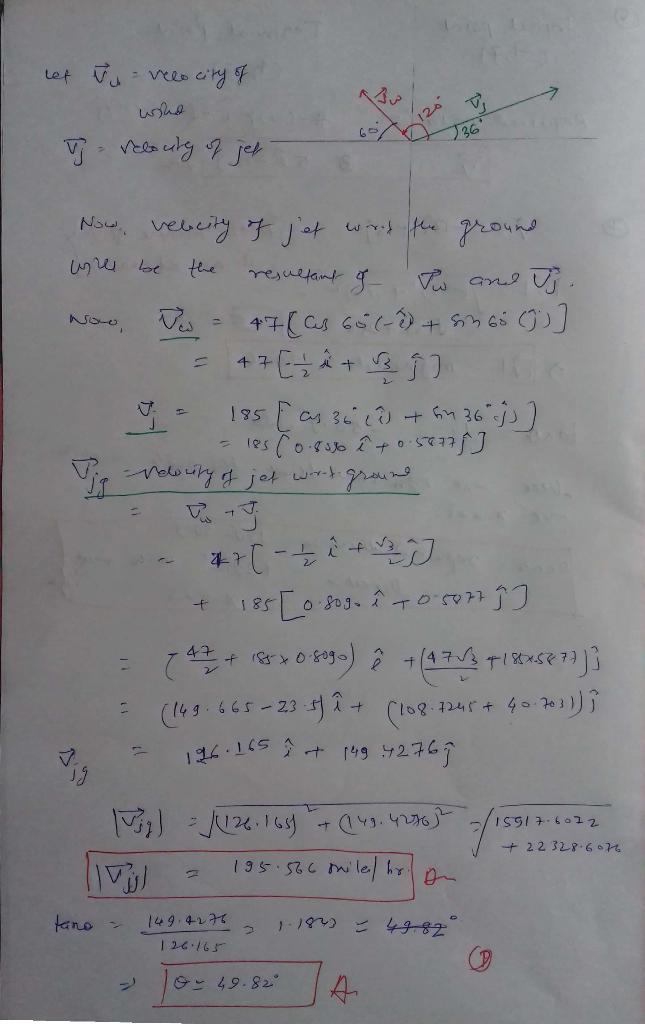 let V⃗w = velocity of
wind
V⃗j = velocity of jet
V⃗w 120° V⃗j
60° 36°
Now, velocity of jet w.r.t the ground
will be the resultant of V⃗w and V⃗j.
Now, V⃗w = 47[cos 60°(-î) + sin 60°(ĵ)]
= 47[-1/2 î + √3/2 ĵ]
V⃗j = 185[cos 36°(î) + sin 36° ĵ)]
= 185(0.8090 î + 0.5877 ĵ]
V⃗jg = velocity of jet w.r.t. ground
= V⃗w + V⃗j
= 47[-1/2 î + √3/2 ĵ]
+ 185[0.8090 î + 0.5877 ĵ]
= [-47/2 + 185×0.8090) î + (47√3/2 + 185×5877)] ĵ
= (149.665 - 23.5) î + (108.7245 + 40.703)) ĵ
V⃗jg = 126.165 î + 149.4276 ĵ
|V⃗jg| = √(126.165)² + (149.4276)² = √15917.6022
+ 22328.6076
|V⃗jg| = 195.566 mile/hr. A
tanθ = 149.4276/126.165 = 1.1843 = 49.82°
⇒ θ = 49.82° A